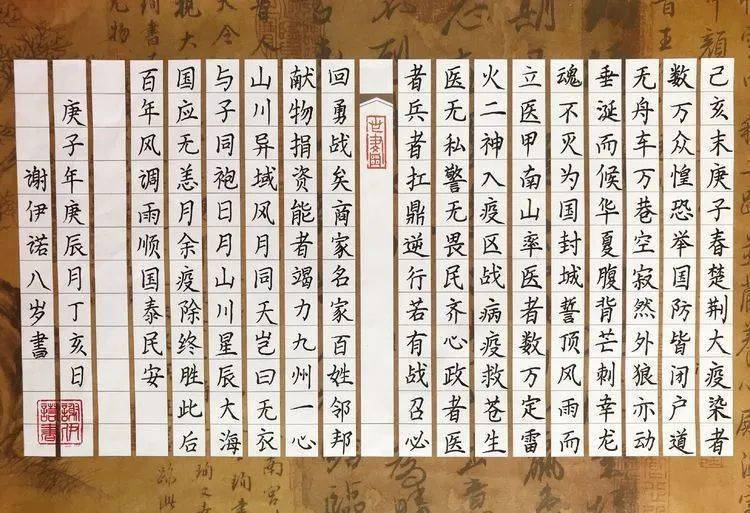 己亥末庚子春楚荆大疫染者
数万众惶恐举国防皆闭户道
无舟车万巷空寂然外狼亦动
垂涎而候华夏腹背芒刺幸龙
魂不灭为国封城誓顶风雨而
立医甲南山率医者数万定雷
火二神入疫区战病疫救苍生
医无私警无畏民齐心政者医
者兵者扛鼎逆行若有战召必
回勇战矣商家名家百姓邻邦
献物捐资能者竭力九州一心
山川异域风月同天岂曰无衣
与子同袍日月山川星辰大海
国应无恙月余疫除终胜此后
百年风调雨顺国泰民安
庚子年庚辰月丁亥日
谢伊诺八岁書